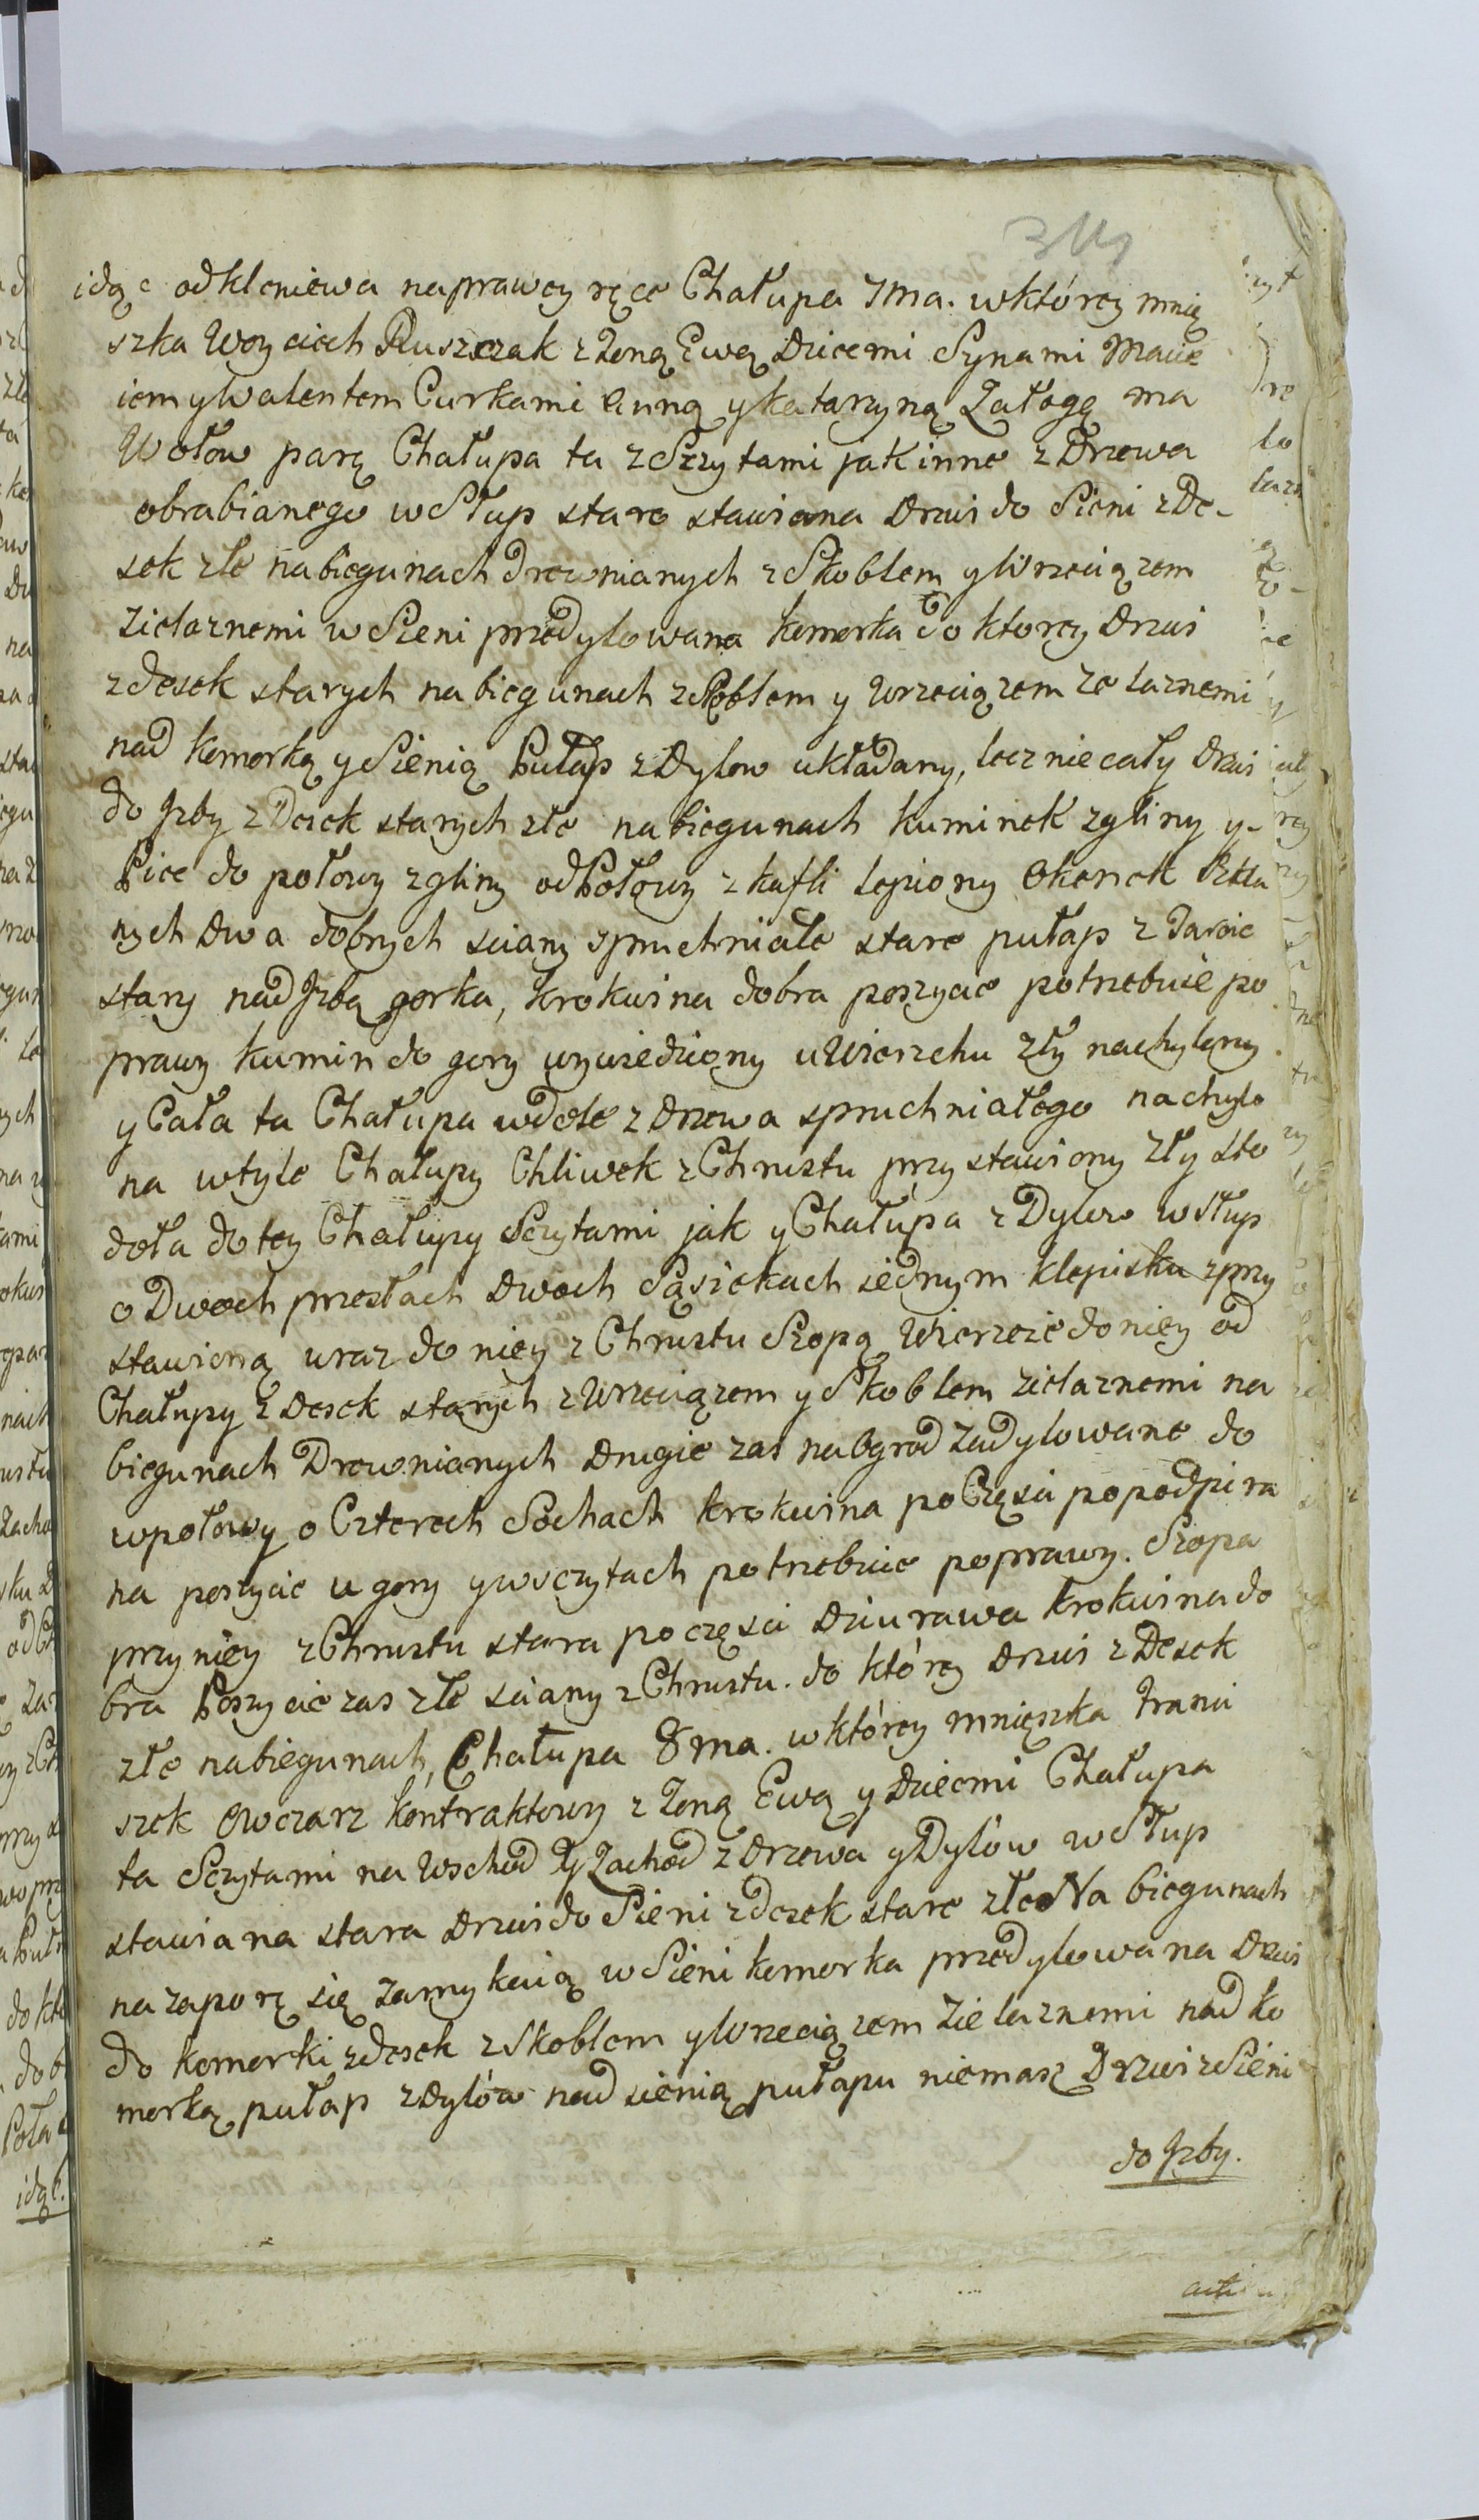 idąc od kleniewa na prawey ręce Chałupa 7ma. w którey mnię
szka Woyciech Ruszczak z Zoną Ewą Dziecmi Synami Macie
iem y Walentem Curkami Anną y katarzyną Załogę ma
Wołow parę Chałupa ta z Szzytami jak inne z Drzewa
obrabianego w Słup staro stawiana Drzwi do Sieni z De-
sek złe na biegunach Drewnianych z Skoblem y Wrzeciązem
Zielaznemi w Sieni przedylowana komorka do ktorey Drzwi
z desek starych na biegunach z skoblem y Wrzeciązem Zelaznemi
nad komorką y Sienią Pułap z Dylow układany, lecz niecały Drzwi
do Jzby z Desek starych złe na biegunach kuminek z gliny y-
Piec do połowy z gliny od Połowy z kafli lepiony Okenek Szkla
nych Dwa dobrych sciany spruchniałe stare pułap z Tarcic
stary nad Jzbą gorka, krokwina dobra poszycie potrzebuie po
prawy kumin do gory wywiedziony u Wierzchu zły nachylony
y Cała ta Chałupa w dole z Drzewa spruchniałego nachylo
na w tyle Chałupy Chliwek z Chrustu przystawiony zły Sto
doła do tey Chałupy Szytami jak y Chałupa z Dylow w słup
o Dwoch przesłach Dwoch Sąsiekach iednym klepisku z przy
stawioną wraz do niey z Chrustu Szopą Wierzeie do niey od
Chałupy z Desek starych z Wrzeciązem y Skoblem zielaznemi na
biegunach Drewnianych Drugie zas na Ogrod Zadylowane do
w połowy o Czterech Sochach krokwina po Częsci popodpira
na poszycie u gory y w sczytach potrzebuie poprawy. Szopa
przy niey z Chrustu stara po częsci Dziurawa krokwina do
bra Poszycie zas złe sciany z Chrustu. do którey Drzwi z Desek
złe na biegunach, Chałupa 8ma. w którey mnięszka Franci
szek Owczarz kontraktowy z Zoną Ewą y Dziecmi Chałupa
ta Sczytami na Wschod y Zachod z Drzewa y Dylów w Słup
stawiana stara Drzwi do Sieni z desek stare złe Na biegunach
na zaporę się zamykaią w Sieni komorka przedylowana Drzwi
do komorki z desek z Skoblem y Wrzeciązem Zielaznemi nad ko
morką pułap z Dylów nad sienią pułapu niemasz Drzwi z Sieni
do Jzby.